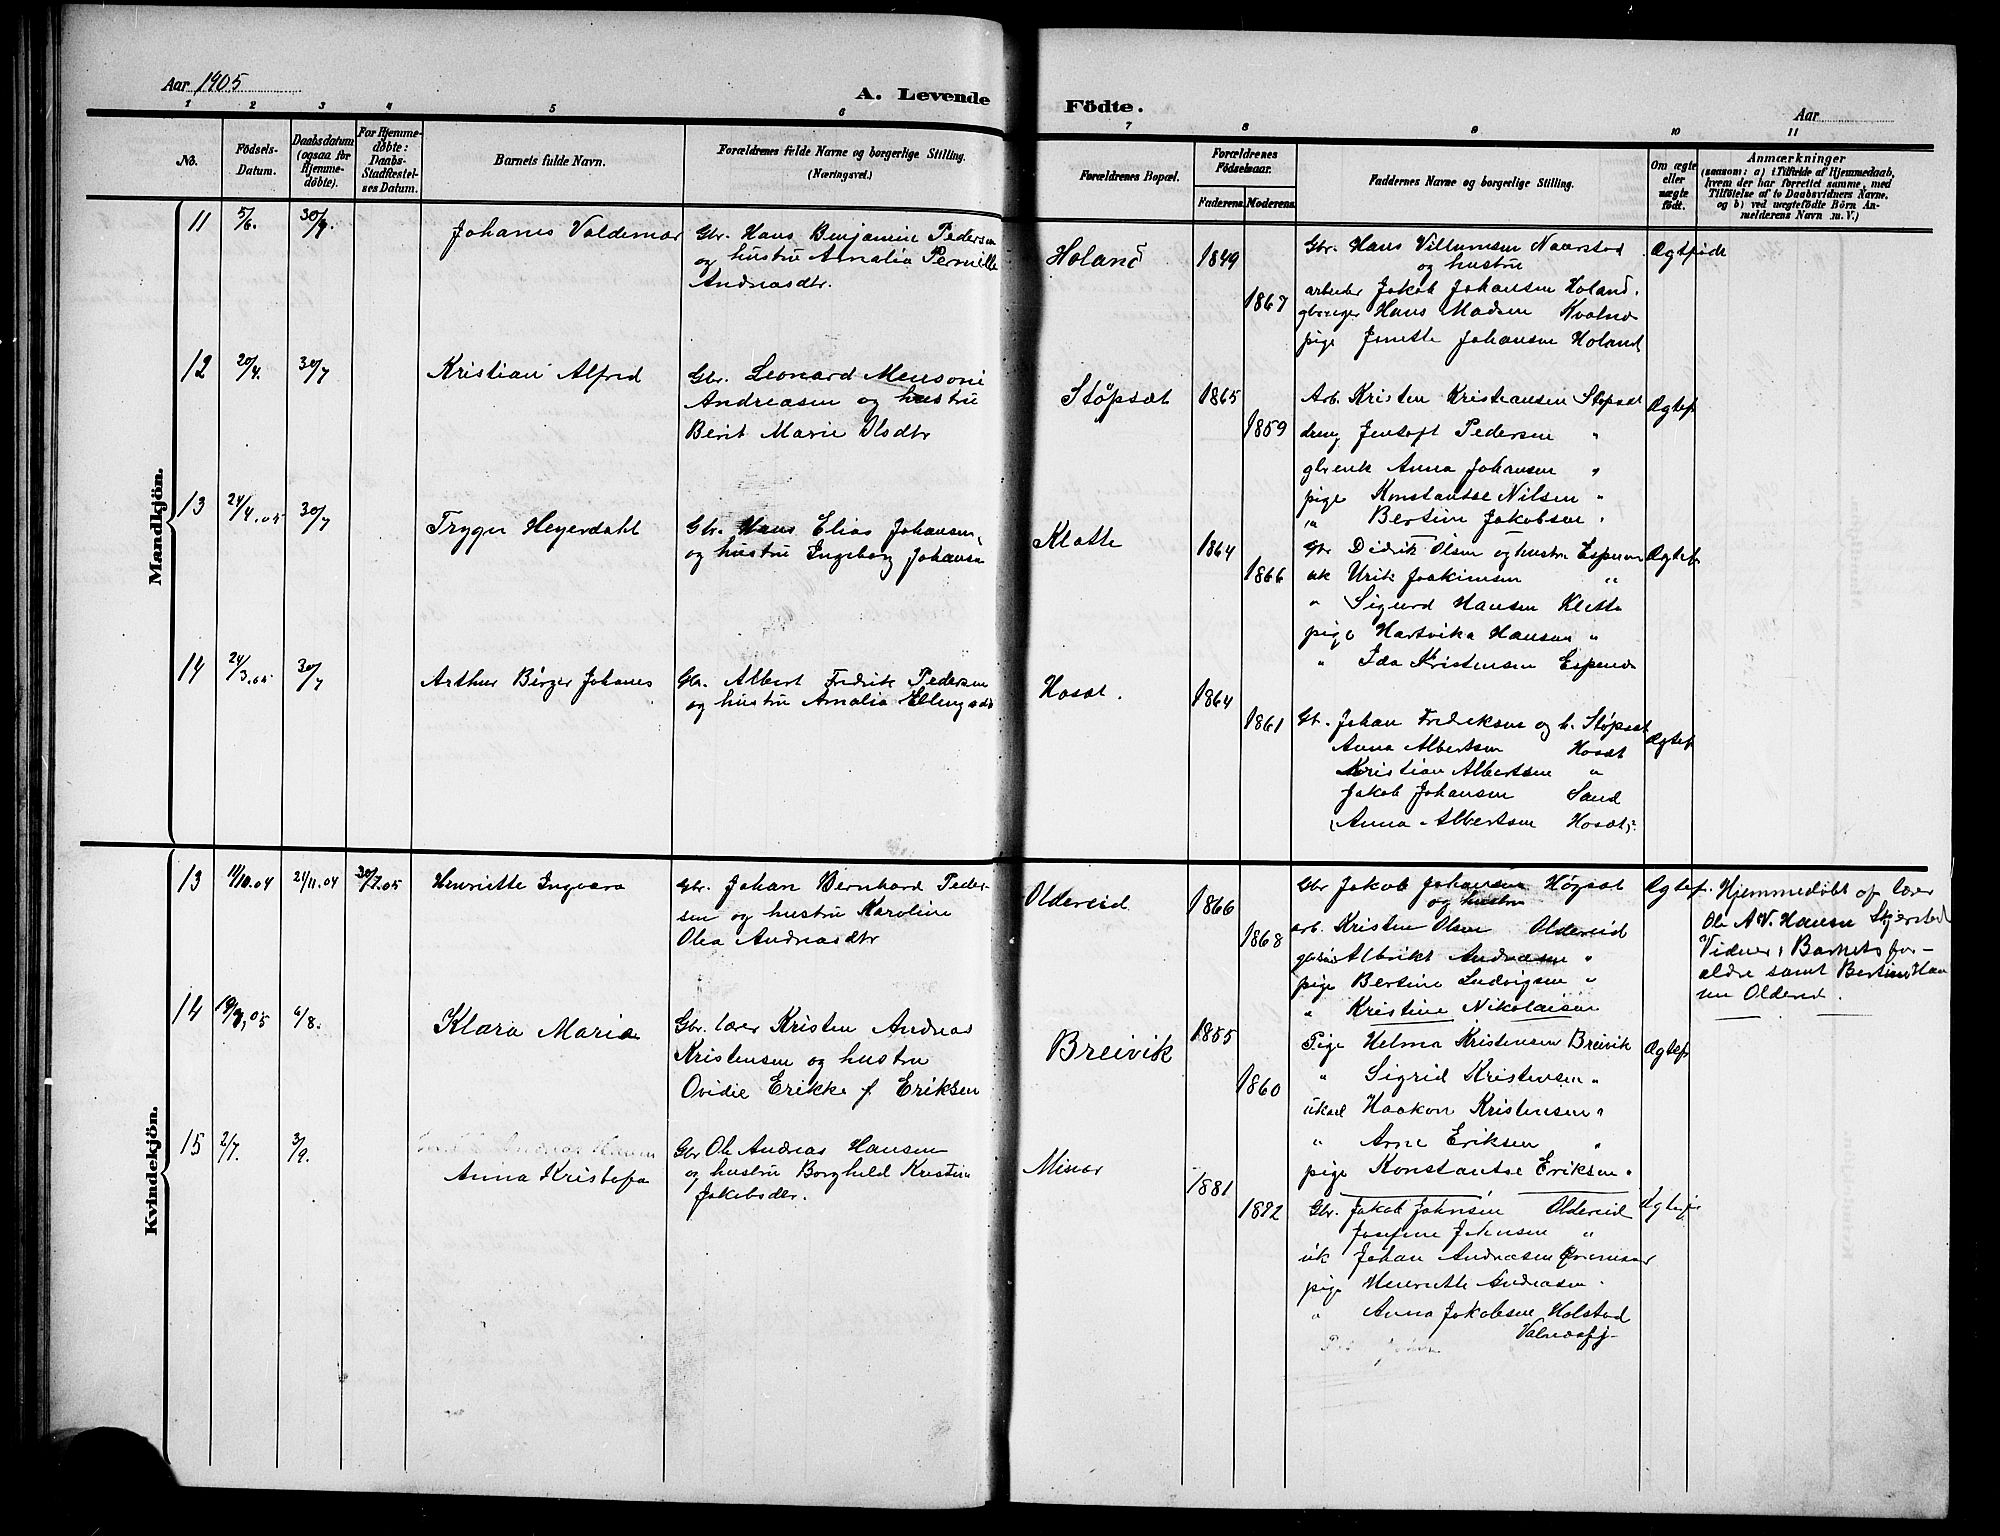 Aar 1905
A. Levende Födte.
Aar
1 2 3 4 5 6 7 8 9 10 11
No.
Födsels-Datum.
Daabsdatum (ogsaa for Hjemme-döbte).
For Hjemme-döbte: Daabs-Stadfæstel-ses Datum.
Barnets fulde Navn.
Forældrenes fulde Navne og borgerlige Stilling.
(Næringsvei.)
Forældrenes Bopæl.
Forældrenes Födselsaar.
Faderens. Moderens.
Faddernes Navne og borgerlige Stilling.
Om ægte eller uægte födt.
Anmærkninger
(saasom: a) i Tilfælde af Hjemmedaab,
hvem der har forrettet samme, med
Tilföielse af to Daabsvidners Navne,
og b) ved uægtefödte Börn An-
melderens Navn m. V.)
Mandkjön.
11 5/6. 30/7. Johanes Valdemar
Gbr. Hans Benjamin Pedersen
og hustru Amalia Pernille
Andreasdtr.
Holand 1849 1867
Gbr. Hans Villumsen Naarstad
og hustru
arbeider Jakob Johansen Holand.
Hans Madsen Kvalnes
pige Jenette Johansen Holand
Ægtefødte
12 20/4. 30/7 Kristian Alfred
Gbr. Leonard Mensoni
Andreasen og hustru
Berit Marie Olsdtr
Støpsæt 1865 1859
Arb. Kristen Kristiansen Støpsæt
dreng Jentoft Pedersen "
gbrenk Anna Johansen "
pige Konstantse Nilsen "
" Bertine Jakobsen "
Ægtef
13 24/4.05 30/7 Trygve Heyerdahl
Gbr. Hans Elias Johansen
og hustru Ingeborg Johansen
Klætte 1864 1866
Gbr Didrik Olsen og hustru Espenes
uk Urik Joakimsen "
" Sigurd Hansen Kletta
pige Hartvika Hansen "
" Ida Kristensen Espenes
Ægtef
14 24/3.05 30/7 Arthur Birger Johanes
Gbr. Albert Fredrik Pedersen
og hustru Amalia Ellingsdtr
Hosæt. 1864 1861
Gb. Johan Fredriksen og h. Støpsæt
Anna Albertsen Hosæt
Kristian Albertsen "
Jakob Johansen Sand
(Anna Albertsen Hosæt)?
Ægtef
Kvindekjön.
13 11/10.04 21/11.04 30/7.05 Henriette Ingvara
Gbr. Johan Bernhard Peder-
sen og hustru Karoline
Olea Andreasdtr
Oldereid 1866 1868
Gbr Jakob Johansen Høgset
og hustru
arb. Kristen Olsen Oldereid
Albrikt Andreasen "
pige Bertine Ludvigsen "
" Kristine Nikolaisen
Ægtef.
Hjemmedøbt af lærer
Ole A.V. Hansen Skjerstad
Vidner: Barnets for-
ældre samt Bertine Han
sen Oldereid.
14 19/3.05 6/8. Klara Maria
Gbr. lærer Kristen Andreas
Kristensen og hustru
Ovidie Erikke f Eriksen
Breivik 1855 1860
Pige Helma Kristensen Breivik
" Sigrid Kristensen "
Haakon Kristensen "
" Arne Eriksen "
pige Konstantse Eriksen "
Ægtef
15 2/7. 3/9.
Anna Kristofa
Gbr Ole Andreas Hansen
og hustru Borghild Kristine
Jakobsdtr.
Misvær 1881 1882
Gbr. Jakob Johnsen Oldereid
Josefine Johnsen "
uk Johan Andreasen
pige Henriette Andreasen
" Anna Jakobsen Holstad
Valnesfj-
Ægtef